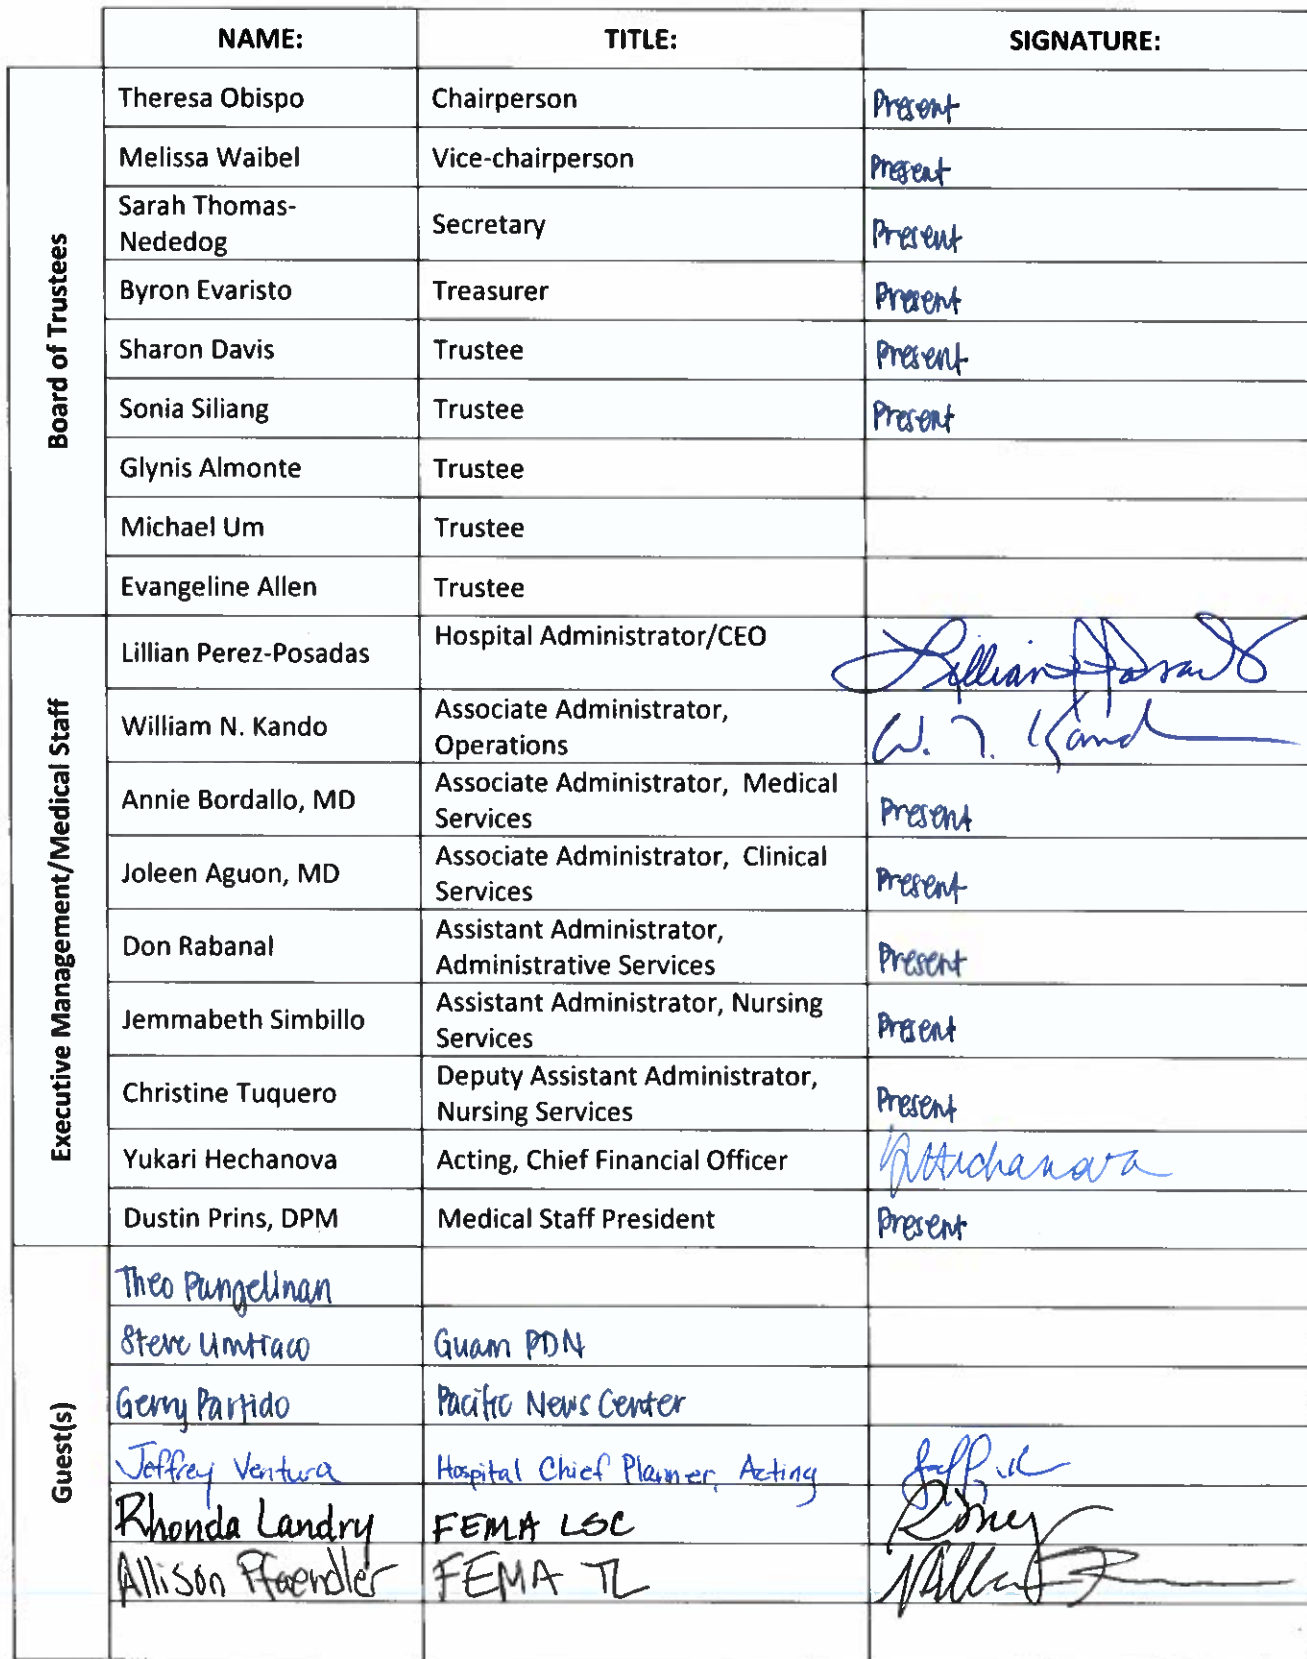 NAME: TITLE: SIGNATURE:
Board of Trustees
Theresa Obispo Chairperson Present
Melissa Waibel Vice-chairperson Present
Sarah Thomas-
Nededog Secretary Present
Byron Evaristo Treasurer Present
Sharon Davis Trustee Present
Sonia Siliang Trustee Present
Glynis Almonte Trustee
Michael Um Trustee
Evangeline Allen Trustee
Executive Management/Medical Staff
Lillian Perez-Posadas Hospital Administrator/CEO
William N. Kando Associate Administrator,
Operations W. N. Kand
Annie Bordallo, MD Associate Administrator, Medical
Services Present
Joleen Aguon, MD Associate Administrator, Clinical
Services Present
Don Rabanal Assistant Administrator,
Administrative Services Present
Jemmabeth Simbillo Assistant Administrator, Nursing
Services Present
Christine Tuquero Deputy Assistant Administrator,
Nursing Services Present
Yukari Hechanova Acting, Chief Financial Officer
Dustin Prins, DPM Medical Staff President Present
Guest(s)
Theo Pangelinan
Steve Umtraco Guam PDN
Gerry Partido Pacific News Center
Jeffrey Ventura Hospital Chief Planner, Acting
Rhonda Landry FEMA LSC
Allison Pfaendler FEMA TL